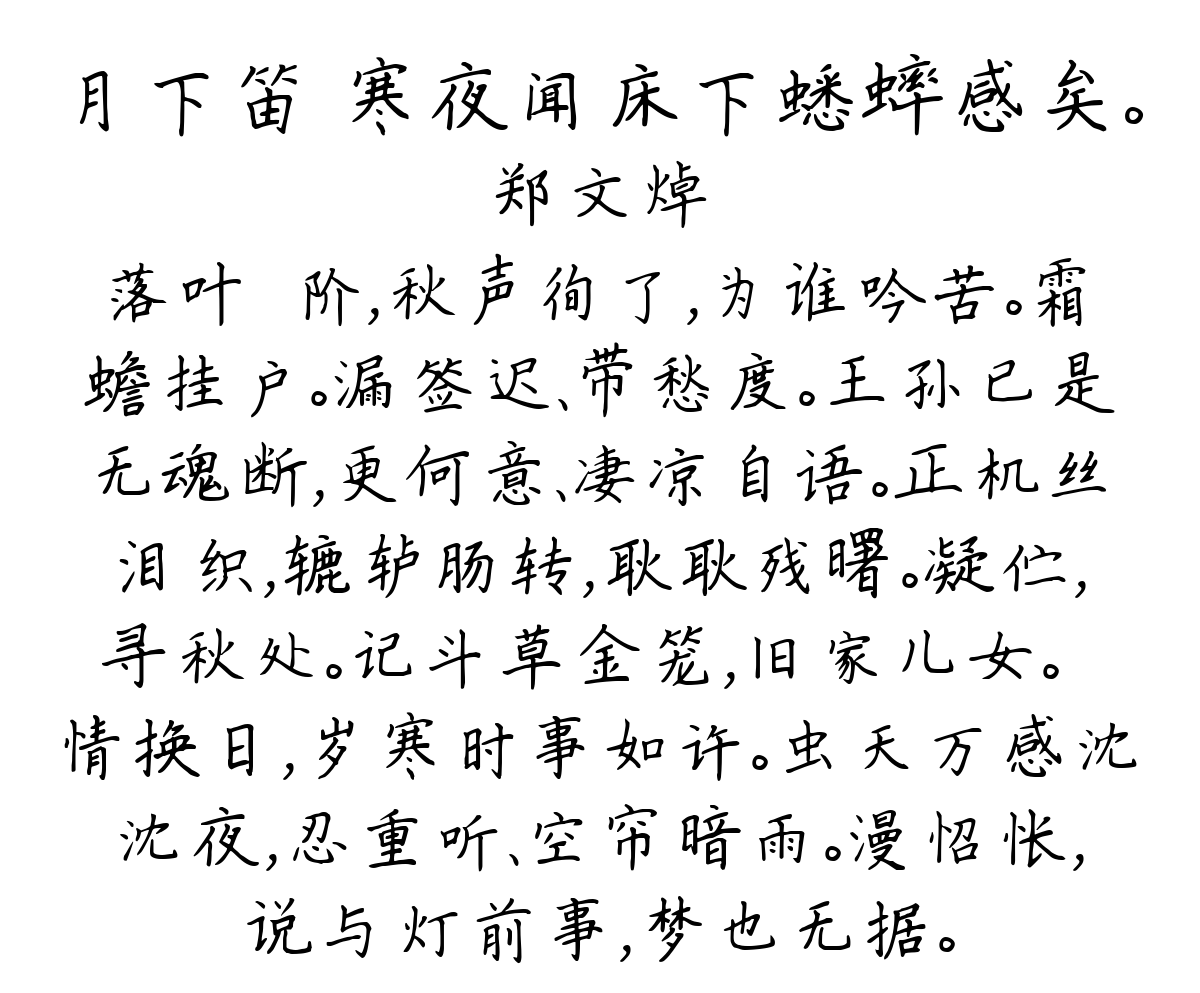 月下笛 寒夜闻床下蟋蟀感矣。
郑文焯
落叶 阶,秋声徇了,为谁吟苦。霜
蟾挂户。漏签迟、带愁度。王孙已是
无魂断,更何意、凄凉自语。正机丝
泪织,辘轳肠转,耿耿残曙。凝伫,
寻秋处。记斗草金笼,旧家儿女。
情换日,岁寒时事如许。虫天万感沈
沈夜,忍重听、空帘暗雨。漫怊怅,
说与灯前事,梦也无据。